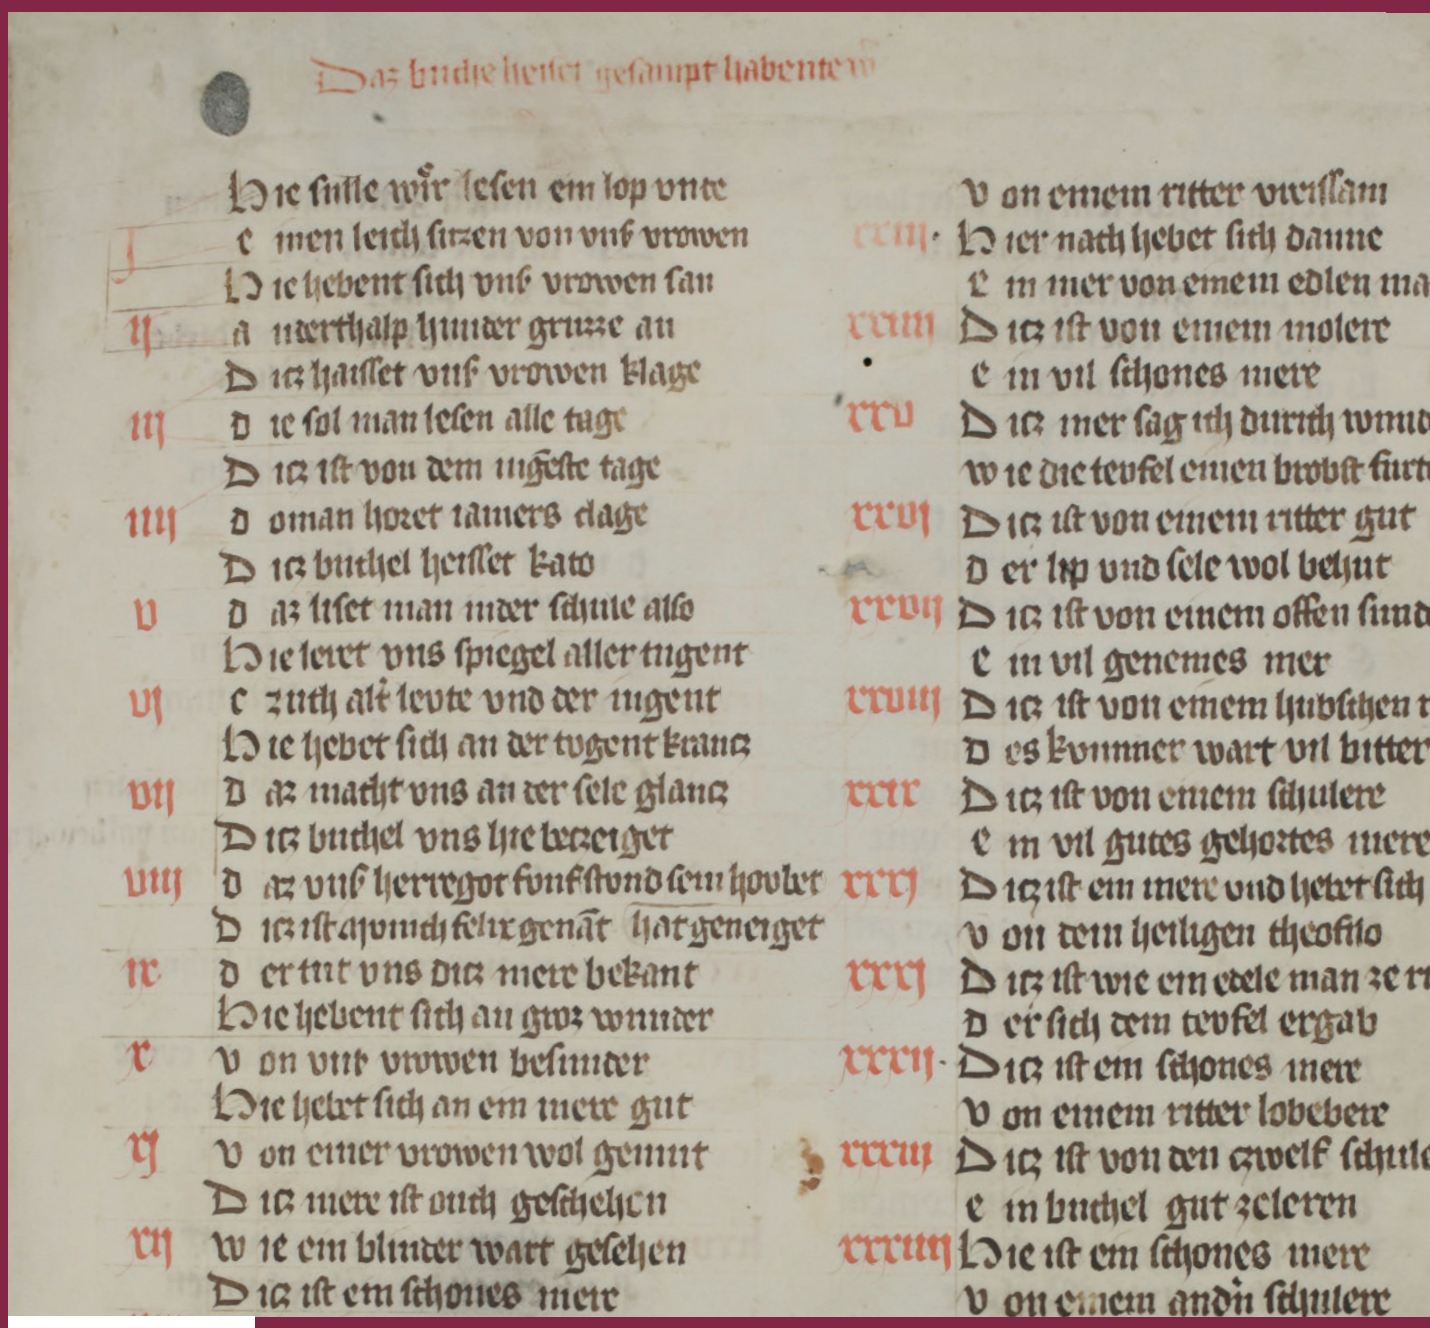 Daz buche heiset gesampt habentewr
Hie sulle wir lesen ein lop vnte
j e inen leich sitzen von vnser vrowen
Hie hebent sich vnser vrowen san
ij a nderthalp hunder gruzze an
Ditz haisset vnser vrowen klage
iij d ie sol man lesen alle tage
Ditz ist von dem iugesten tage
iiij d oman horet iamers clage
Ditz buchel heisset kato
v d az liset man inder schule also
Hie leret vns spiegel aller tugent
vj c zuch alter levte vnd der iugent
Hie hebet sich an der tvgent krantz
vij d az macht vns an der sele glantz
Ditz buchel vns hie betzeiget
viij d az vnser herregot fvnfstvnd sein hovbet
Ditz ist mvnich felix genāt hat geneiget
ix d er tut vns ditz mere bekant
Hie hebent sich an groz wunder
x v on vnser vrowen besunder
Hie hebet sich an ein mere gut
xj v on einer vrowen wol gemut
Ditz mere ist ouch geschehen
xij w ie ein blinder wart gesehen
Ditz ist ein schones mere
v on einem ritter
xxiij. Hier nach hebet sich danne
e in mer von einem edlen ma
xxiiij Ditz ist von einem molere
e in vil schones mere
xxv Ditz mer sag ich durch wund
w ie die tevfel einen brobst furt
xxvj Ditz ist von einem ritter gut
d er lip vnd sele wol behut
xxvij Ditz ist von einem offen sund
e in vil genemes mer
xxviij Ditz ist von einem hubschen r
d es kvmmer wart vil bitter
xxix Ditz ist von einem schulere
e in vil gutes gehortes mere
xxxj Ditz ist ein mere vnd hebet sich
v on dem heiligen theofilo
xxxj Ditz ist wie ein edele man ze ri
d er sich dem tevfel ergab
xxxij. Ditz ist ein schones mere
v on einem ritter lobebere
xxxiij Ditz ist von den czwelf schule
e in buchel gut zeleren
xxxiiij Hie ist ein schones mere
v on einem andn̄ schulere